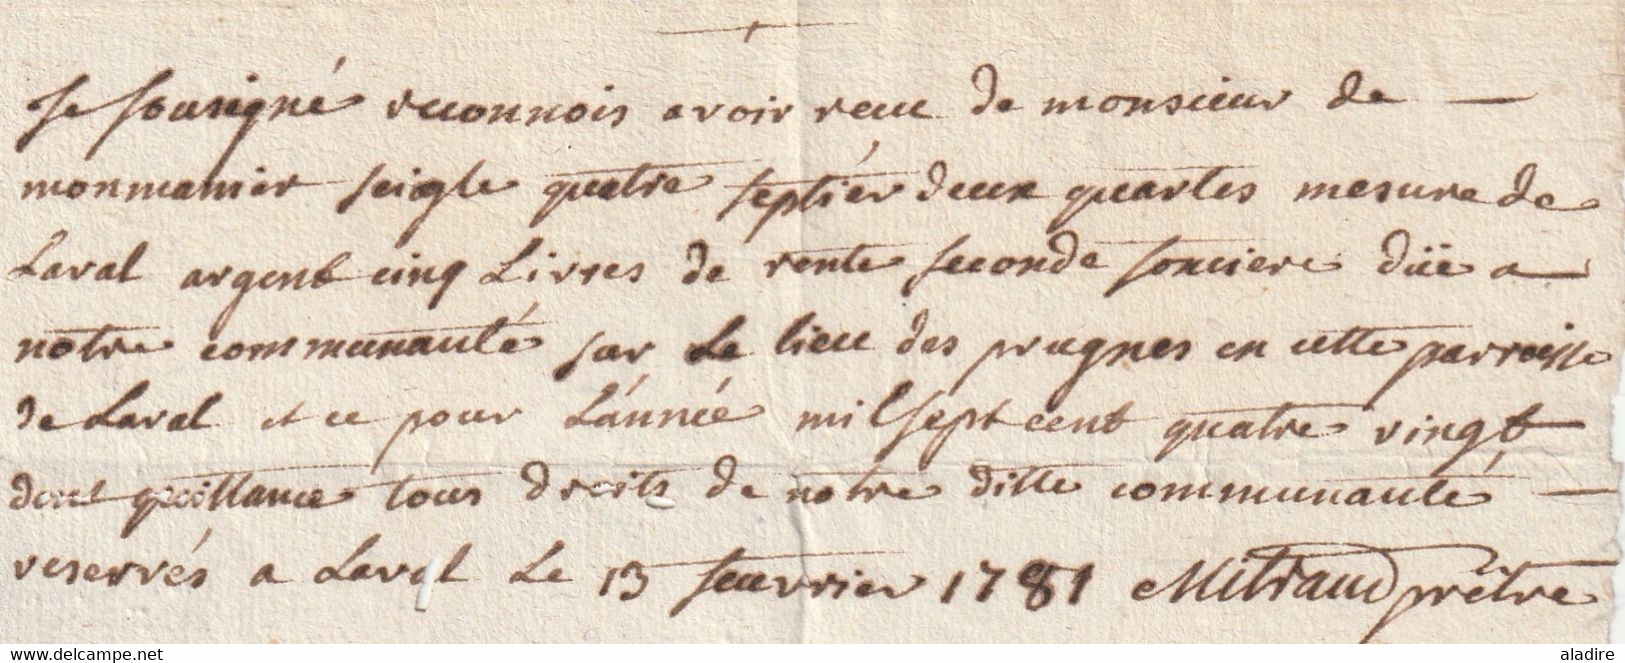 Je sousigné reconnois avoir receu de monsieur de —
monmanier seigle quatre septier deux quartes mesure de
Laval argent cinq Livres de rente seconde fonciere düe a
notre communauté sur Le lieu des prugnes en cette parroisse
de Laval et ce pour L'année mil sept cent quatre vingt
dont quittance tous droits de notre ditte communauté —
reservés a Laval Le 13 feuvrier 1781 Mitraud prêtre
www.delcampe.net
aladire